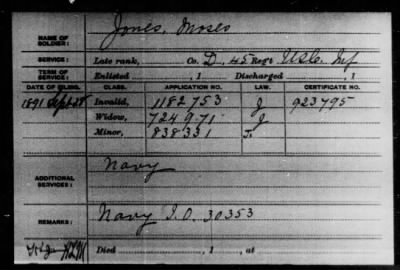 NAME OF SOLDIER: Jones, Moses
SERVICE: Late rank, Co. D, 45 Reg't U.S.C. Inf
TERM OF SERVICE: Enlisted , 1 Discharged , 1
DATE OF FILING. CLASS. APPLICATION NO. LAW. CERTIFICATE NO.
1891 Sept 28 Invalid, 1182753 J 923795
Widow, 724971 J
Minor, 838331 J.
ADDITIONAL SERVICES: Navy
REMARKS: Navy I.O. 30353
Died , 1 , at